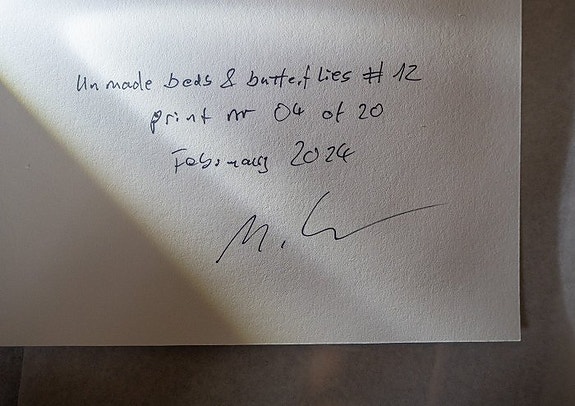 Unmade beds & butterflies # 12
print nr 04 of 20
February 2024